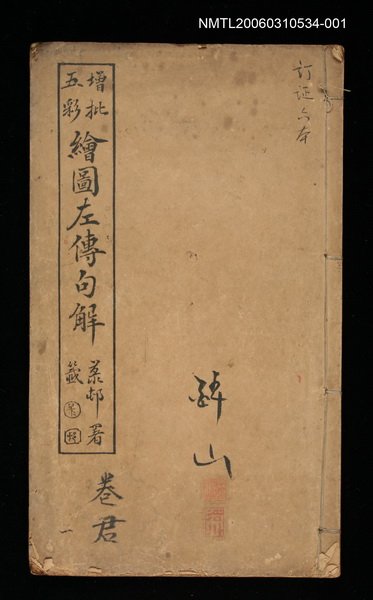 NMTL20060310534-001
訂証六本
增批
五彩
繪圖左傳句解
慕邨署
籤
山
卷君
一